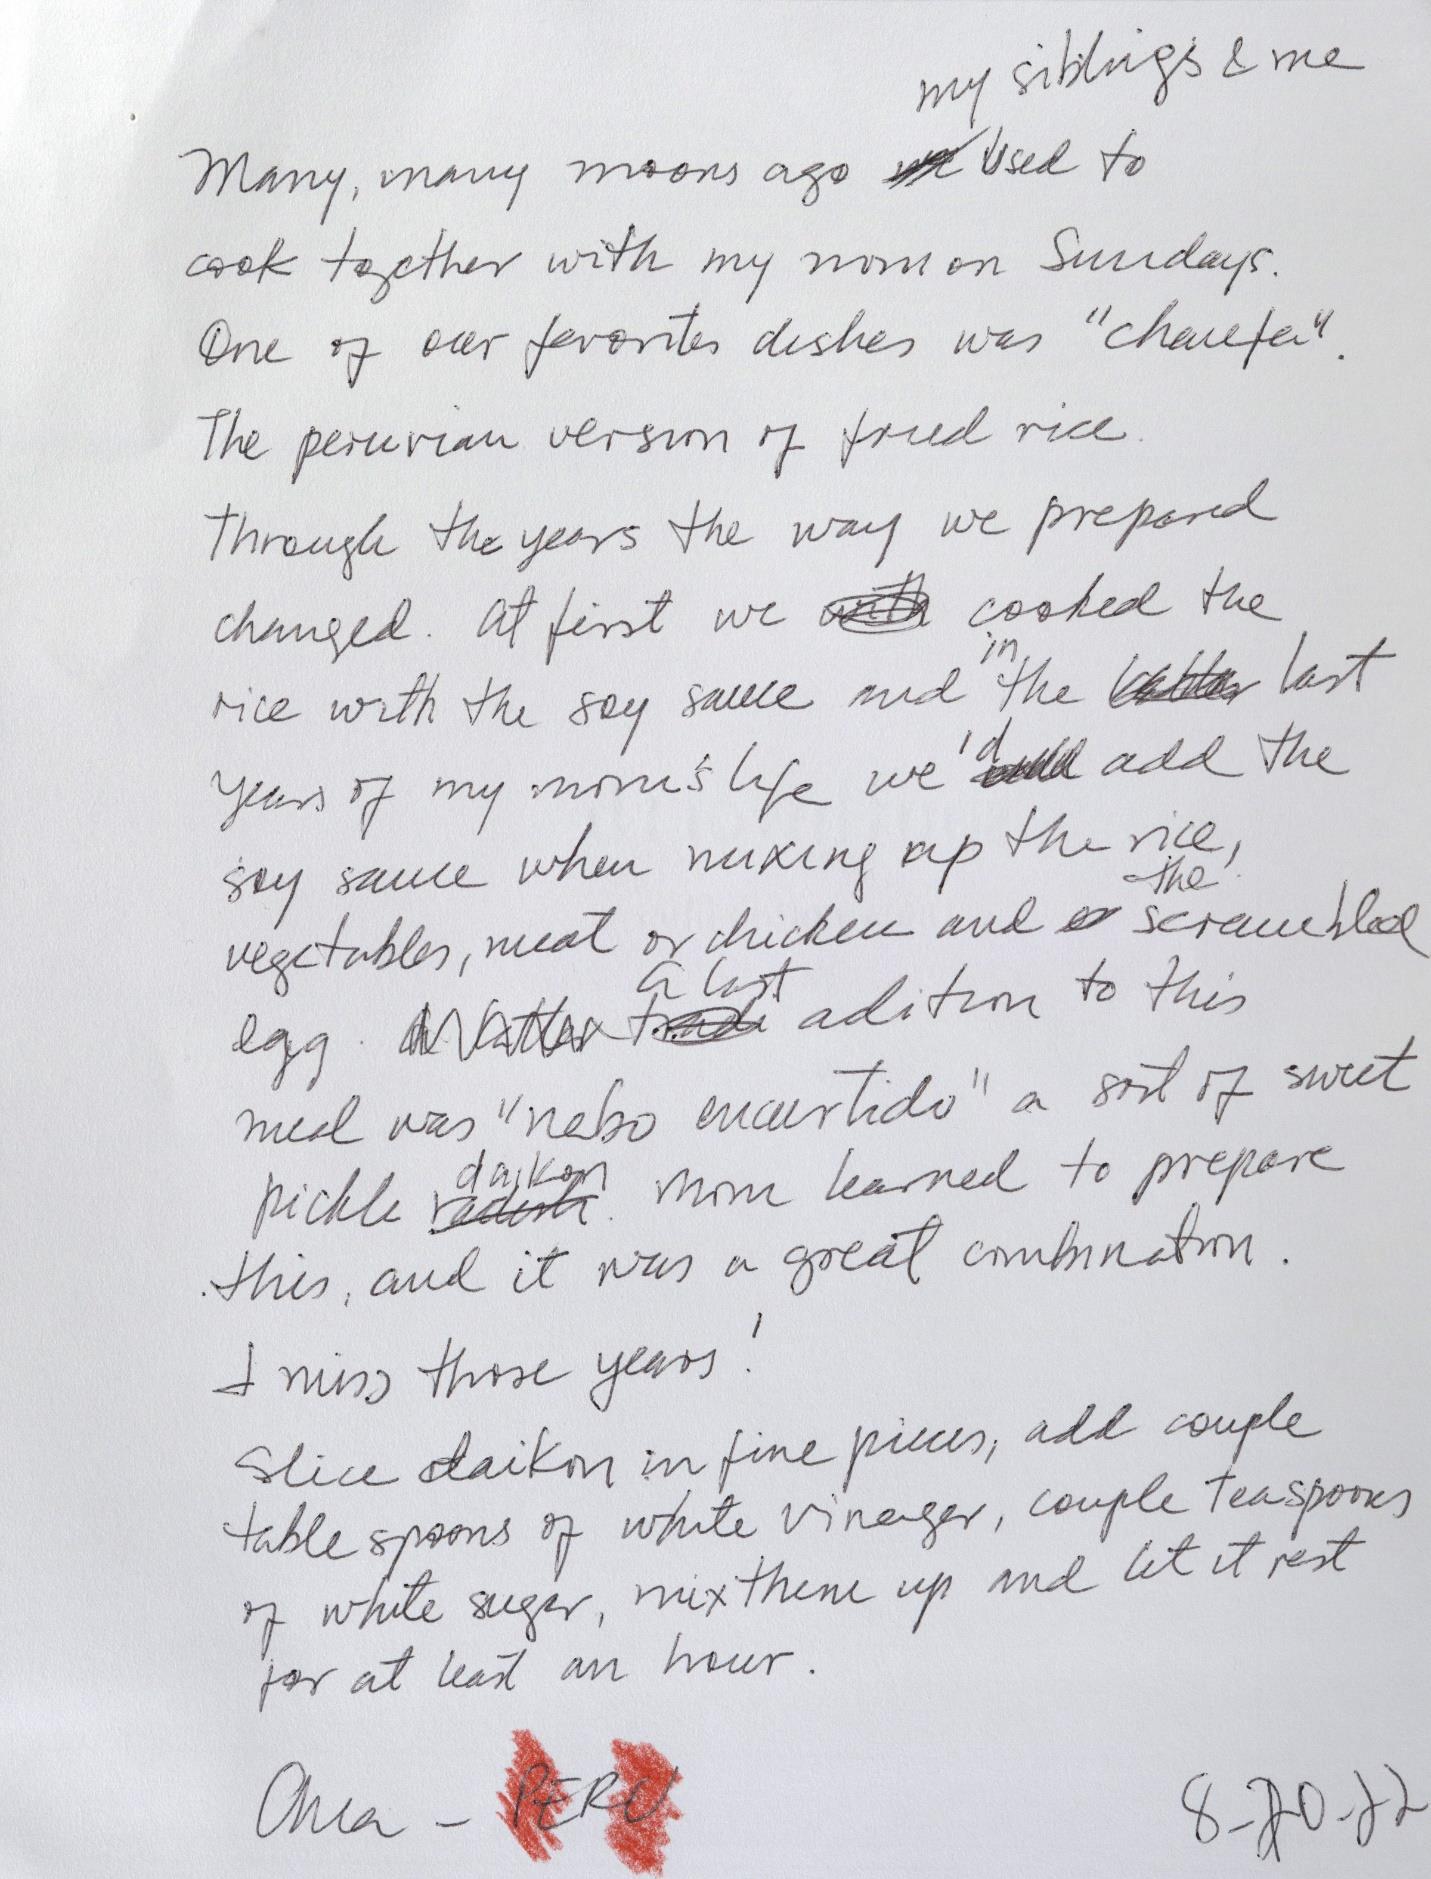 my siblings & me
Many, many moons ago used to
cook together with my mom on Sundays.
One of our favorites dishes was "chaufa".
The peruvian version of fried rice.
Through the years the way we prepared
changed. At first we cooked the
in
rice with the soy sauce and the last
years of my mom's life we'd add the
soy sauce when mixing up the rice,
the
vegetables, meat or chicken and scrambled
a last
egg. adition to this
meal was "nabo encurtido" a sort of sweet
daikon
pickle radish. Mom learned to prepare
this, and it was a great combination.
I miss those years!
Slice daikon in fine pieces, add couple
table spoons of white vineager, couple teaspoons
of white sugar, mix them up and let it rest
for at least an hour.
- PERU
8-20-22